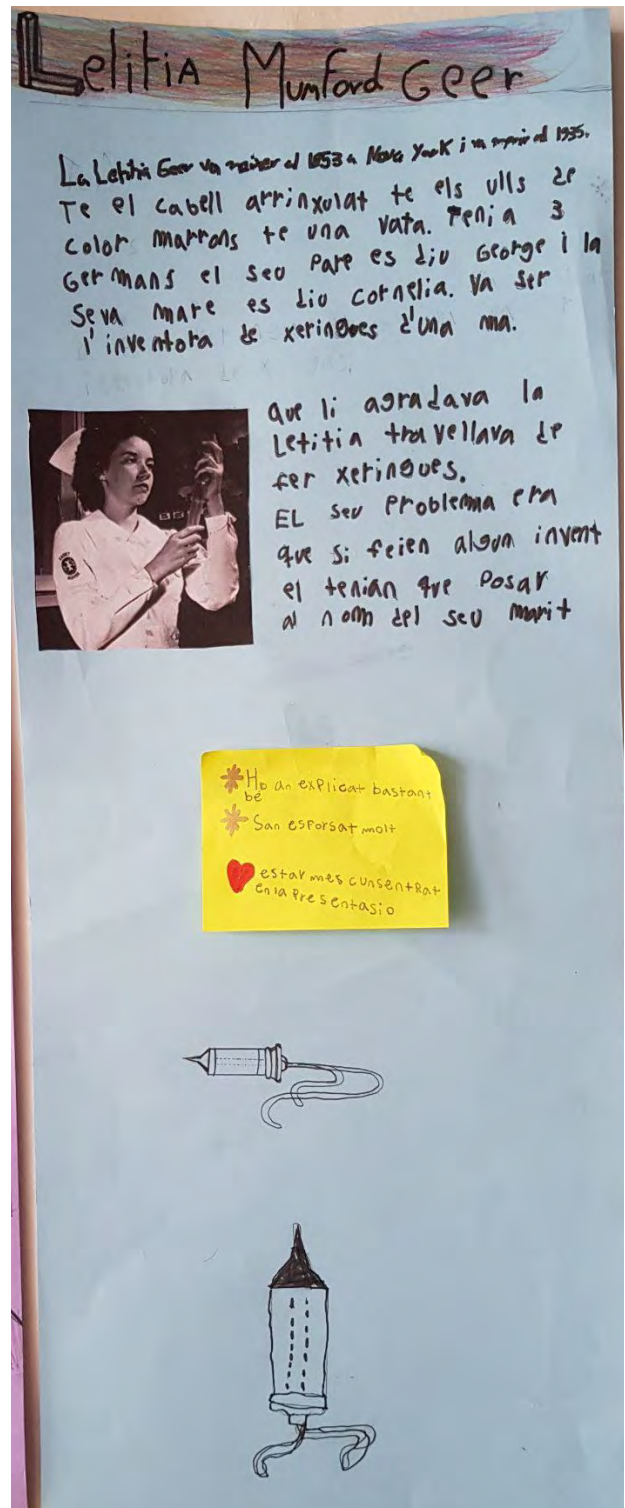 Letitia Mumford Geer
La Letitia Geer va naixer al 1853 a Nova York i va morir al 1935.
Te el cabell arrinxulat te els ulls de
color marrons te una vata. Tenia 3
Germans el seu Pare es diu George i la
Seva mare es diu Cornelia. Va ser
l'inventora de xeringues d'una ma.
que li agradava la
Letitia travellava de
fer xeringues.
EL seu Problema era
que si feien algun invent
el tenian que Posar
al nom del seu marit
Ho an explicat bastant
be
San esforsat molt
estar mes cunsentRat
en la Presentasio